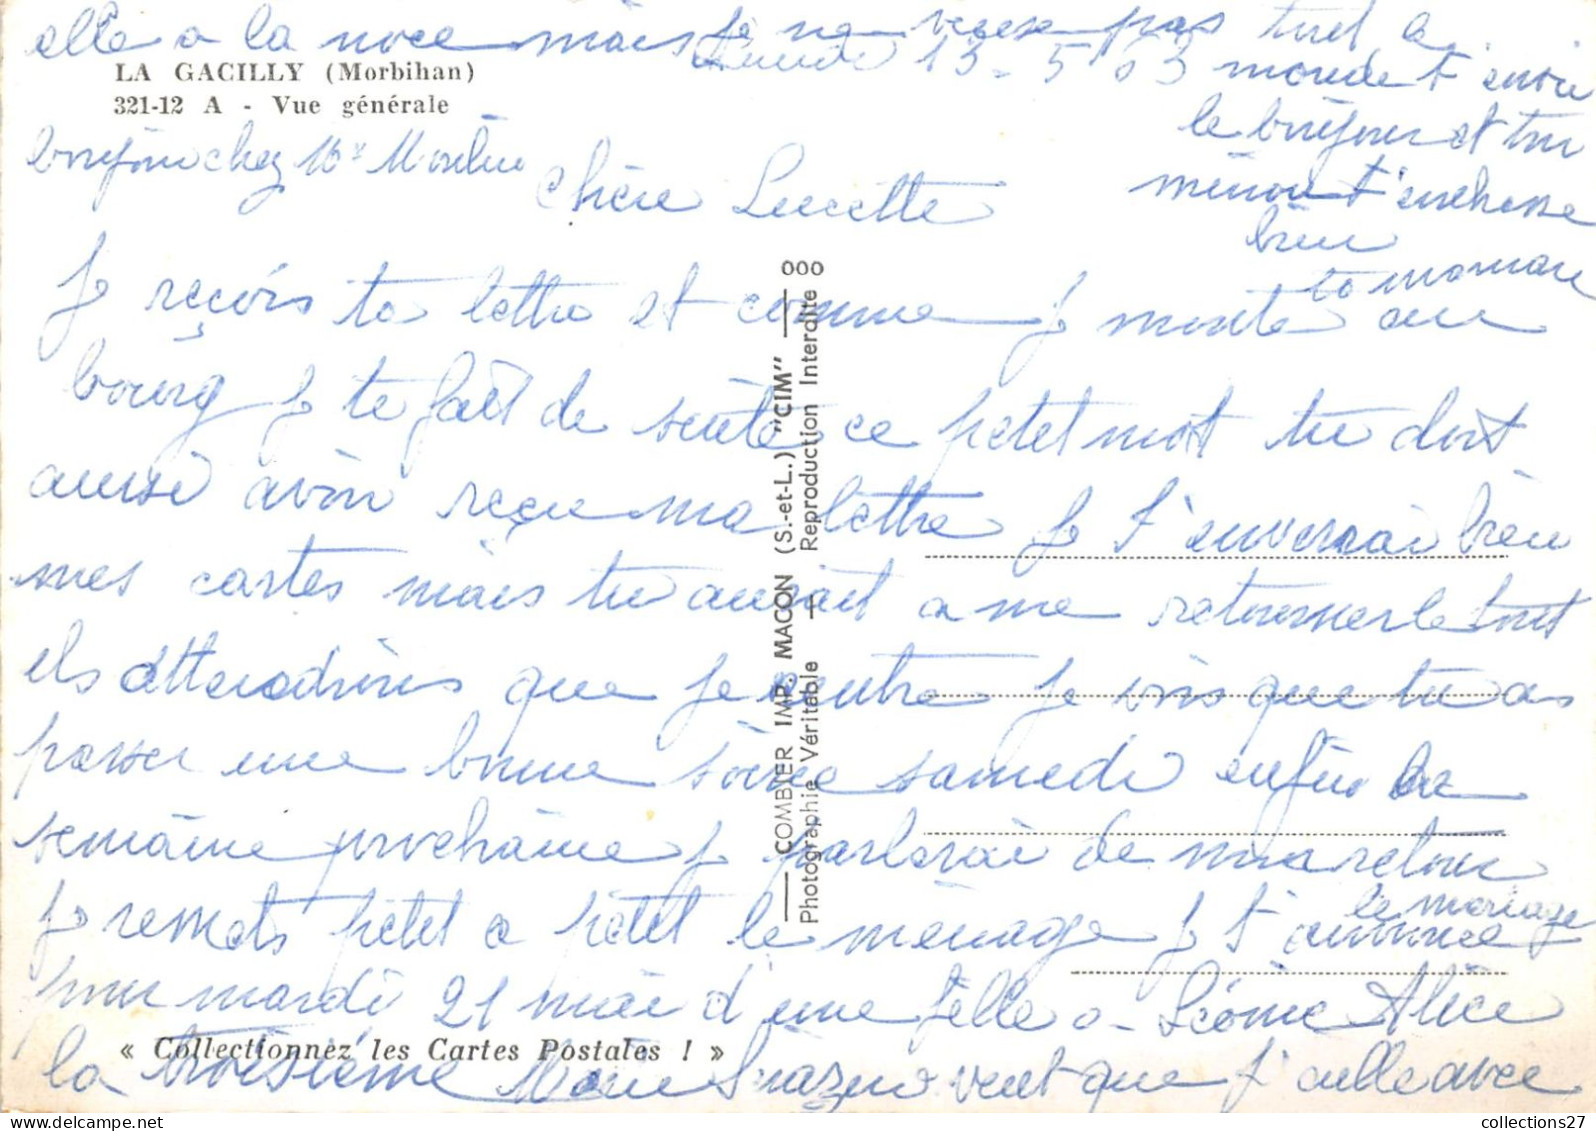 LA GACILLY (Morbihan)
321-12 A - Vue générale
lundi 13-5 63
Chère Lucette
Je reçois ta lettre et comme je monte au
bourg je te fait de suite ce petit mot tu doit
aussi avoir reçu ma lettre je t'enverrai bien
mes cartes mais tu aurait a me retourner le tout
els attendrons que je rentre je vois que tu as
passer une bonne soirée samedi enfin la
semaine prochaine je parlerai de mon retour
je remets petit a petit le ménage je t'annonce le mariage
pour mardi 21 mai d'une fille a Léonie Alice
la troisième Marie veut que j'aille avec
elle a la noce mais je ne veux pas tout le
monde t'envoi
le bonjour et ton
minou t'embrasse
bien
ta maman
bonjour chez Mr Moulin
COMBIER IMP. MACON (S.-et-L.) "CIM"
Photographie Véritable — Reproduction Interdite
000
« Collectionnez les Cartes Postales ! »
collections27